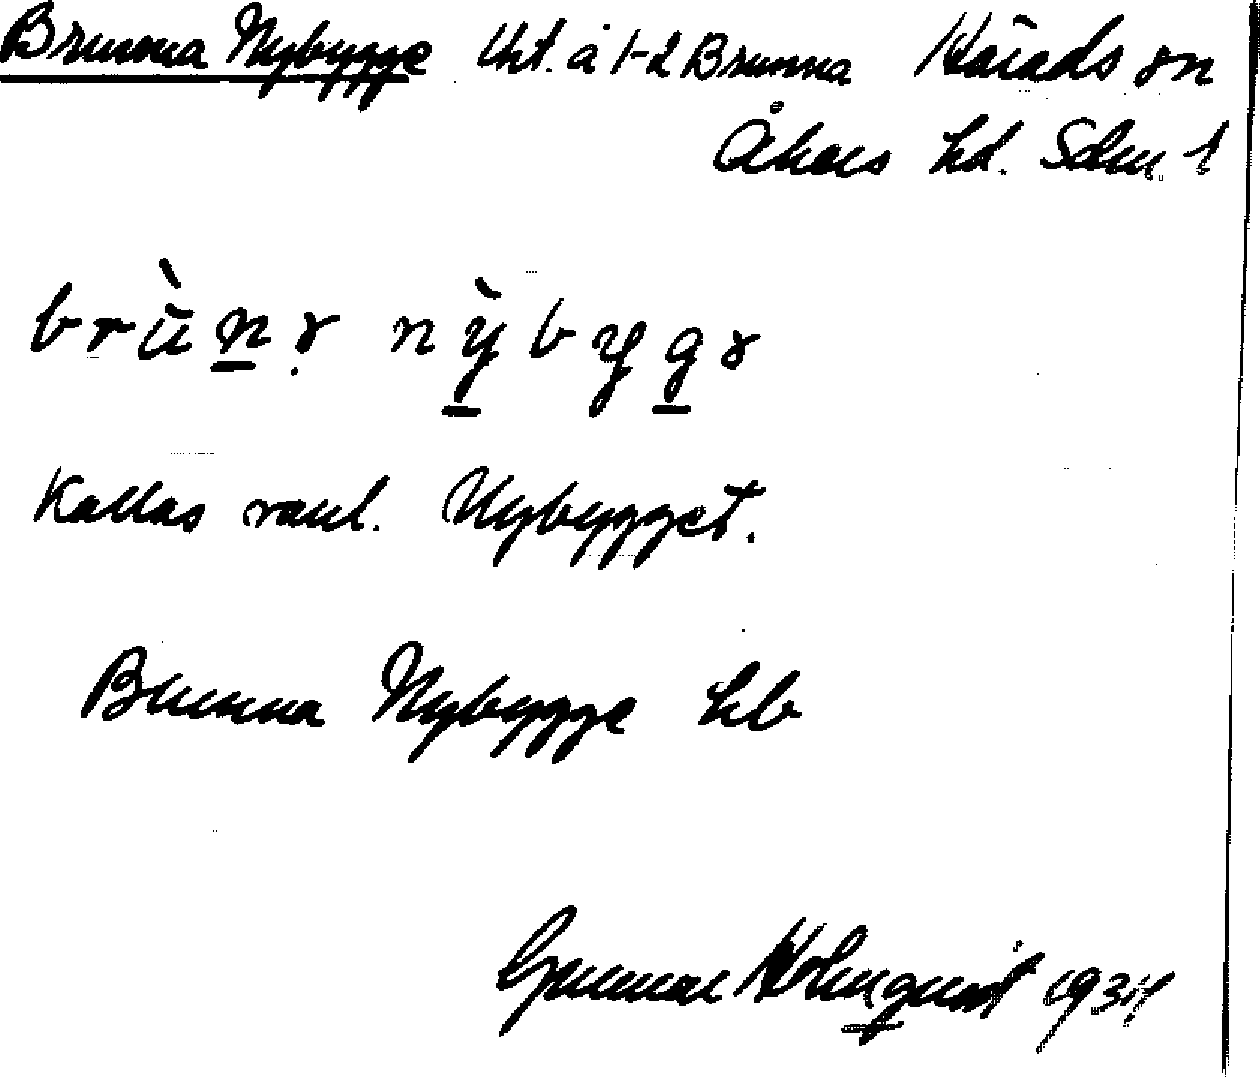 Brunna Nybygge lht. å 1-2 Brunna Härads sn
Åkers hd. Sdm. l
brùnə nỳbygə
Kallas vanl. Nybygget.
Brunna Nybygge hb
Gunnar Holmqvist 1934